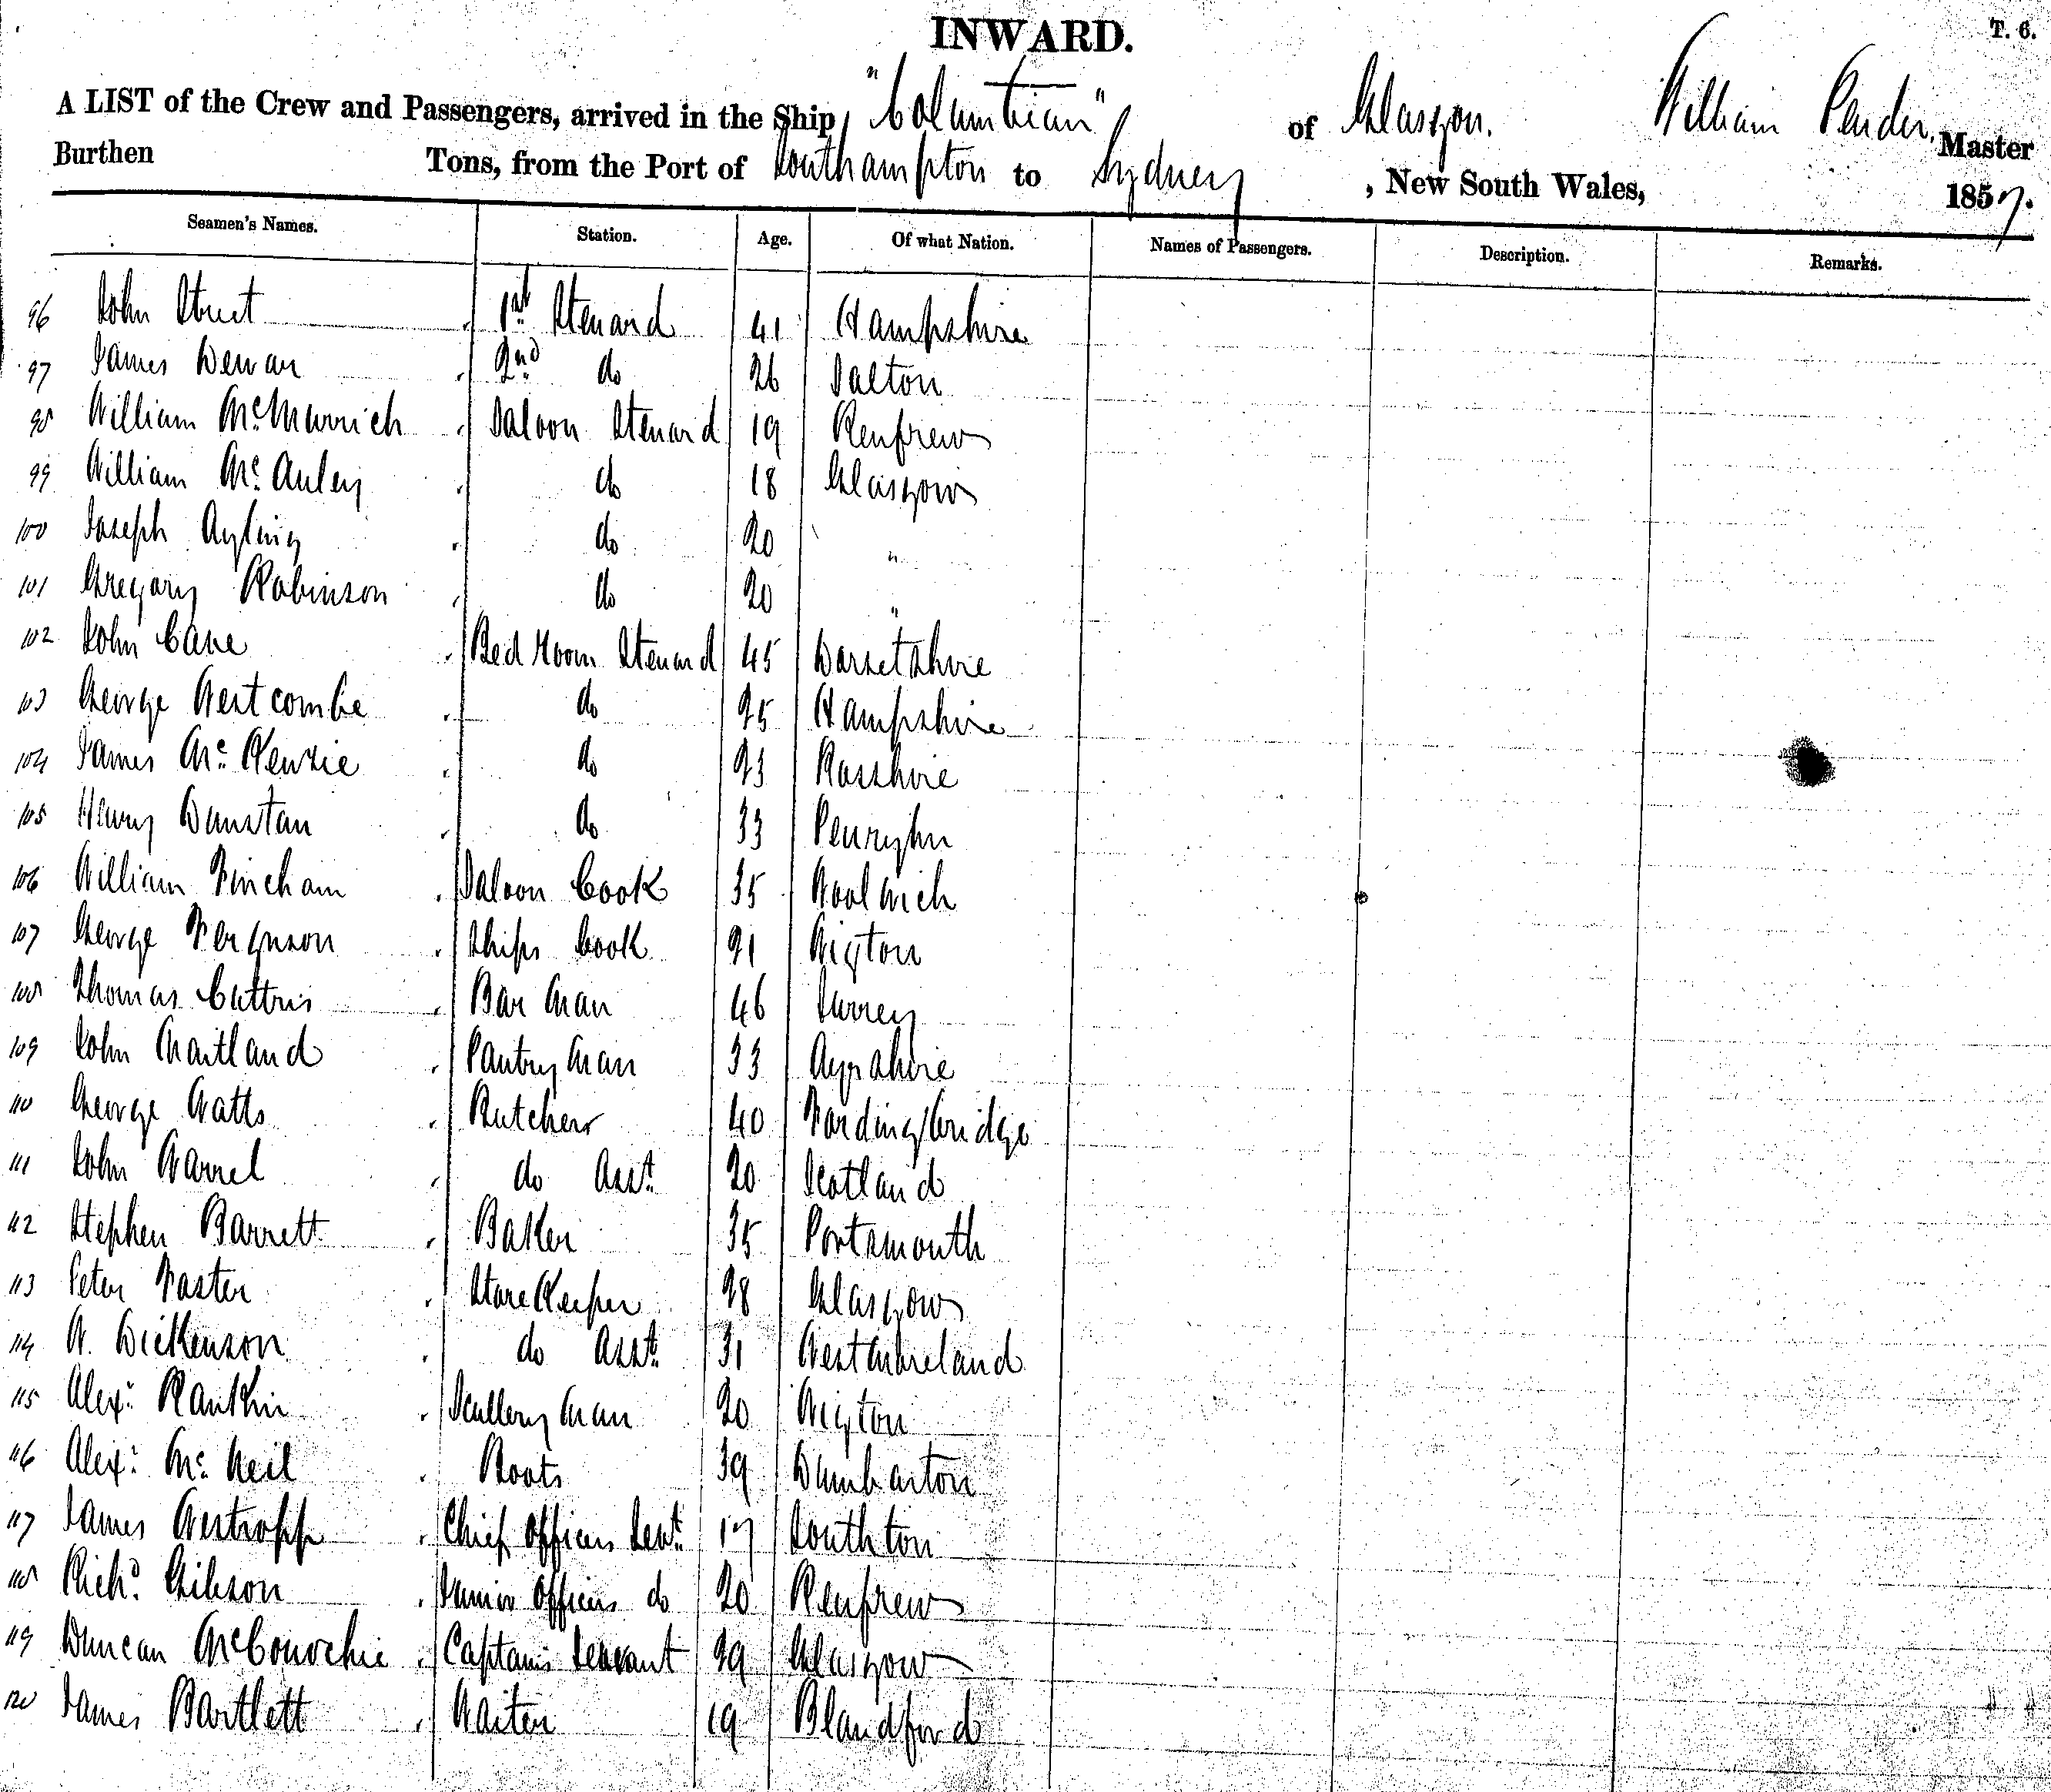 INWARD.
T. 6.
A LIST of the Crew and Passengers, arrived in the Ship "Columbian" of Glasgow. William Pender, Master
Burthen Tons, from the Port of Southampton to Sydney, New South Wales, 1857.
Seamen's Names. Station. Age. Of what Nation. Names of Passengers. Description. Remarks.
96 John Street 1st Steward 41 Hampshire
97 James Dewar 2nd do 26 Salton
98 William McMurrich Saloon Steward 19 Renfrew
99 William McAuley do 18 Glasgow
100 Joseph Ayling do 20 "
101 Gregory Robinson do 20 "
102 John Cave Bed Room Steward 45 Dorsetshire
103 George Westcombe do 25 Hampshire
104 James McKenzie do 23 Rosshire
105 Henry Dunstan do 33 Penryhn
106 William Fincham Saloon Cook 35 Woolwich
107 George Ferguson Ships Cook 21 Wigton
108 Thomas Cuttris Bar Man 46 Surrey
109 John Maitland Pantry Man 33 Ayrshire
110 George Watts Butcher 40 Fordingbridge
111 John Warrel do Asst 20 Scotland
112 Stephen Barrett Baker 35 Portsmouth
113 Peter Foster Store Keeper 28 Glasgow
114 W. Dickenson do Asst 31 Westmoreland
115 Alexr Rankin Scullery Man 20 Wigton
116 Alexr McNeil Boots 39 Dumbarton
117 James Westropp Chief Officers Sevt 17 Southton
118 Richd Gibson Junior Officers do 20 Renfrew
119 Duncan McConochie Captains Servant 29 Glasgow
120 James Bartlett Waiter 19 Blandford